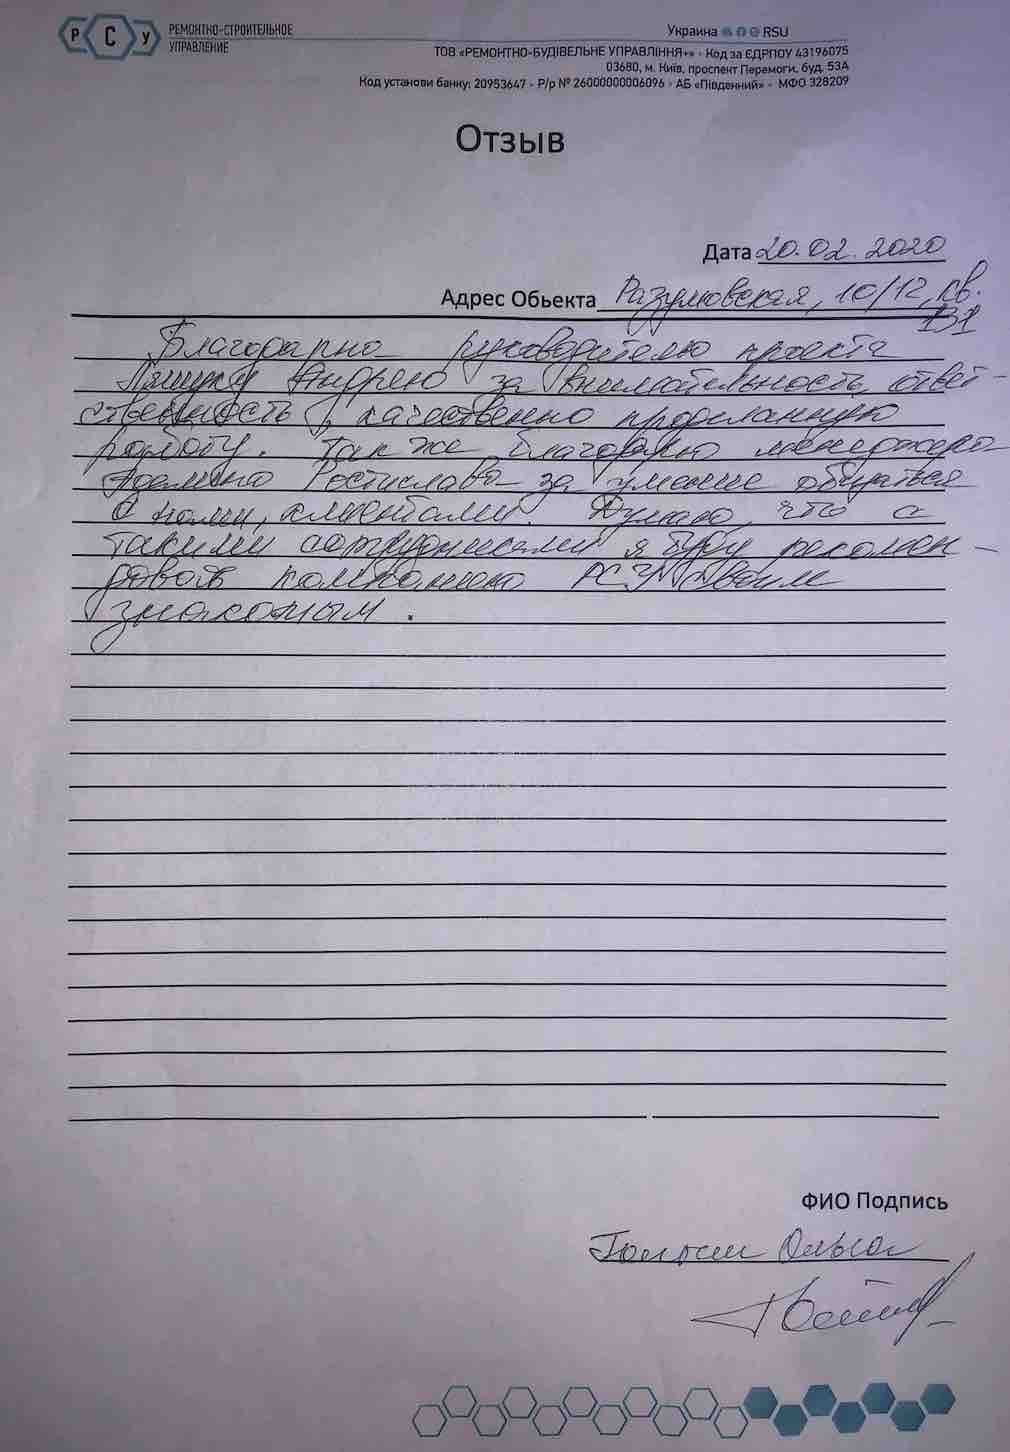 РСУ РЕМОНТНО-СТРОИТЕЛЬНОЕ
УПРАВЛЕНИЕ
Украина RSU
ТОВ «РЕМОНТНО-БУДІВЕЛЬНЕ УПРАВЛІННЯ+» - Код за ЄДРПОУ 43196075
03680, м. Київ, проспект Перемоги, буд. 53А
Код установи банку: 20953647 - Р/р № 26000000006096 - АБ «Південний» - МФО 328209
Отзыв
Дата 20.02.2020
Адрес Обьекта Разумовская, 10/12, кв.
131
Благодарна руководителю проекта
Андрею за внимательность, ответ-
ственность, качественно проделанную
работу. Так же благодарю менеджера
Ростислава за умение общаться
с нами, клиентами. Думаю, что с
такими сотрудниками я буду рекомен-
довать компанию РСУ своим
знакомым.
ФИО Подпись
Ольга